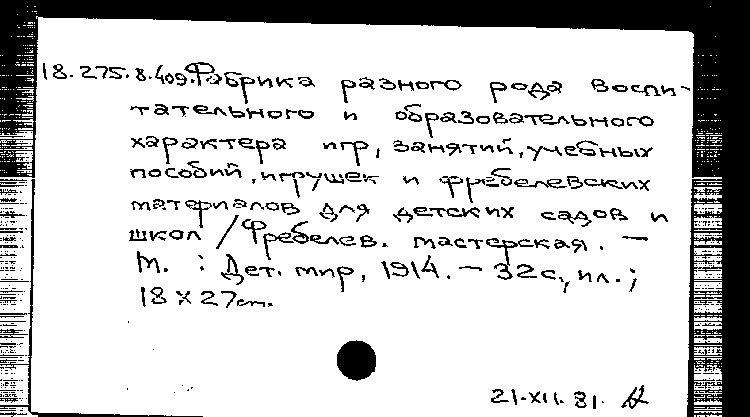 18.275.8.409. Фабрика разного рода воспи-
тательного и образовательного
характера игр, занятий, учебных
пособий, игрушек и фребелевских
материалов для детских садов и
школ / Фребелев. мастерская. —
М. : Дет. мир, 1914. — 32 с., ил.;
18 х 27 см.
21.XII.81.